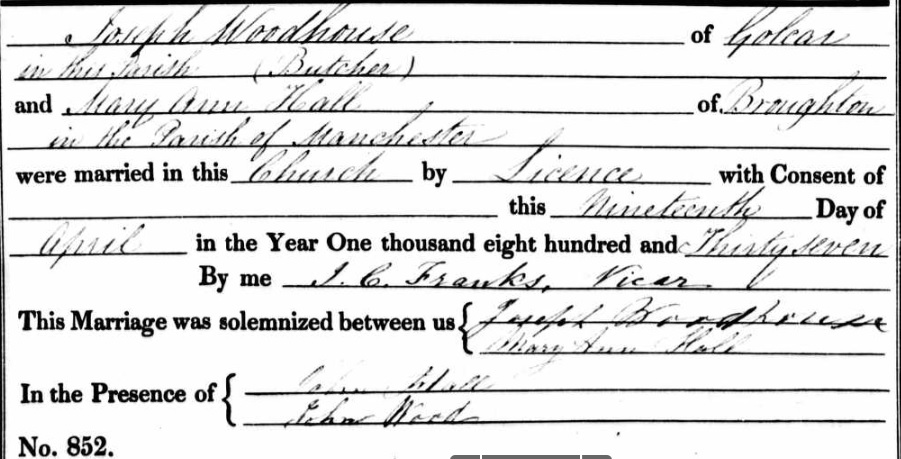 Joseph Woodhouse of Golcar
in this Parish (Butcher)
and Mary Ann Hall of Broughton
in the Parish of Manchester
were married in this Church by Licence with Consent of
this Nineteenth Day of
April in the Year One thousand eight hundred and Thirty seven
By me J. C. Franks, Vicar
This Marriage was solemnized between us { Joseph Woodhouse
Mary Ann Hall
In the Presence of { John Hall
John Wood
No. 852.